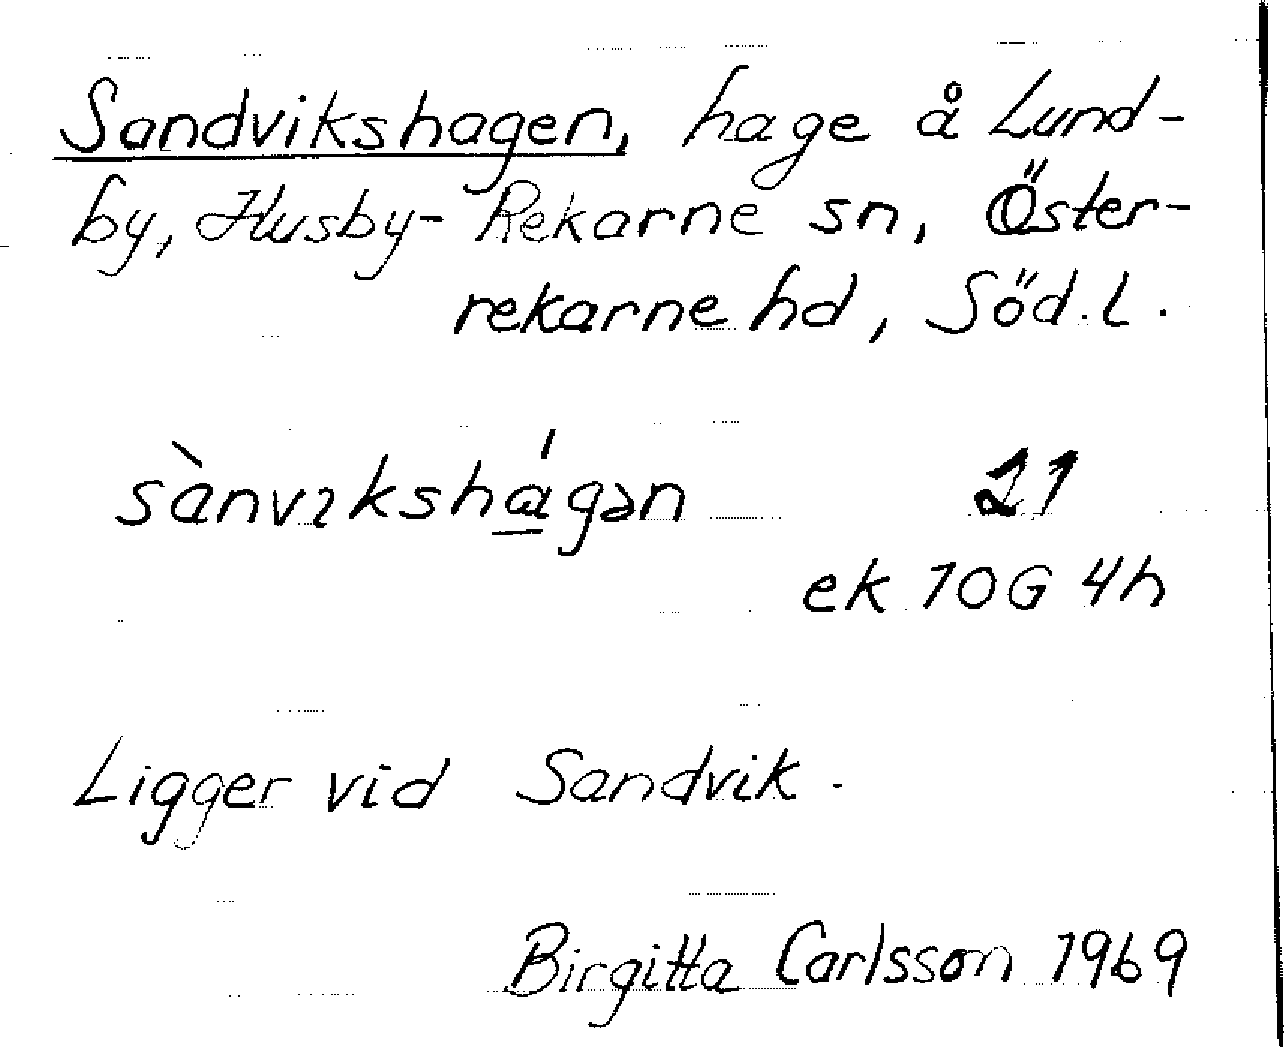 Sandvikshagen, hage å Lund-
by, Husby-Rekarne sn, Öster-
rekarne hd, Söd. l.
sànvıkshá̱gən 21
ek 10G 4h
Ligger vid Sandvik.
Birgitta Carlsson 1969